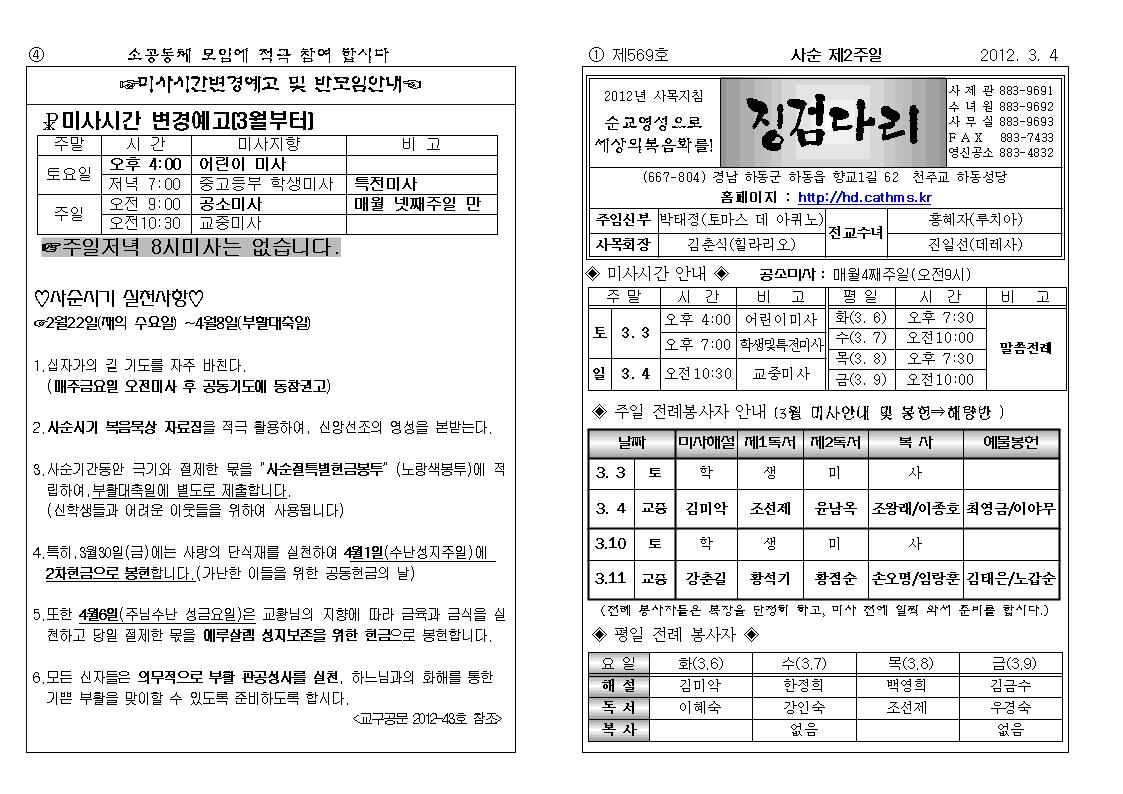 ④ 소공동체 모임에 적극 참여 합시다
☞미사시간변경예고 및 반모임안내☜
미사시간 변경예고(3월부터)
주말 시 간 미사지향 비 고
토요일 오후 4:00 어린이 미사
저녁 7:00 중고등부 학생미사 특전미사
주일 오전 9:00 공소미사 매월 넷째주일 만
오전10:30 교중미사
☞주일저녁 8시미사는 없습니다.
♡사순시기 실천사항♡
☞2월22일(재의 수요일) ~4월8일(부활대축일)
1.십자가의 길 기도를 자주 바친다.
(매주금요일 오전미사 후 공동기도에 동참권고)
2.사순시기 복음묵상 자료집을 적극 활용하여, 신앙선조의 영성을 본받는다.
3.사순기간동안 극기와 절제한 몫을 "사순절특별헌금봉투" (노랑색봉투)에 적
립하여,부활대축일에 별도로 제출합니다.
(신학생들과 어려운 이웃들을 위하여 사용됩니다)
4.특히,3월30일(금)에는 사랑의 단식재를 실천하여 4월1일(수난성지주일)에
2차헌금으로 봉헌합니다.(가난한 이들을 위한 공동헌금의 날)
5.또한 4월6일(주님수난 성금요일)은 교황님의 지향에 따라 금육과 금식을 실
천하고 당일 절제한 몫을 예루살렘 성지보존을 위한 헌금으로 봉헌합니다.
6.모든 신자들은 의무적으로 부활 판공성사를 실천, 하느님과의 화해를 통한
기쁜 부활을 맞이할 수 있도록 준비하도록 합시다.
<교구공문 2012-43호 참조>
① 제569호 사순 제2주일 2012. 3. 4
2012년 사목지침
순교영성으로
세상의복음화를!
징검다리
사 제 관 883-9691
수 녀 원 883-9692
사 무 실 883-9693
F A X 883-7433
영신공소 883-4832
(667-804) 경남 하동군 하동읍 향교1길 62 천주교 하동성당
홈페이지 : http://hd.cathms.kr
주임신부 박태정(토마스 데 아퀴노) 전교수녀 홍혜자(루치아)
사목회장 김춘식(힐라리오) 진일선(데레사)
◈ 미사시간 안내 ◈ 공소미사 : 매월4째주일(오전9시)
주 말 시 간 비 고 평 일 시 간 비 고
토 3. 3 오후 4:00 어린이미사 화(3. 6) 오후 7:30 말씀전례
오후 7:00 학생및특전미사 수(3. 7) 오전10:00
일 3. 4 오전10:30 교중미사 목(3. 8) 오후 7:30
금(3. 9) 오전10:00
◈ 주일 전례봉사자 안내 (3월 미사안내 및 봉헌⇒해량반 )
날짜 미사해설 제1독서 제2독서 복 사 예물봉헌
3. 3 토 학 생 미 사
3. 4 교중 김미악 조선제 윤남옥 조왕래/이종호 최영금/이야무
3.10 토 학 생 미 사
3.11 교중 강춘길 황석기 황점순 손오명/임랑훈 김태은/노갑순
(전례 봉사자들은 복장을 단정히 하고, 미사 전에 일찍 와서 준비를 합시다.)
◈ 평일 전례 봉사자 ◈
요 일 화(3.6) 수(3.7) 목(3.8) 금(3.9)
해 설 김미악 한정희 백영희 김금수
독 서 이혜숙 강인숙 조선제 우경숙
복 사 없음 없음